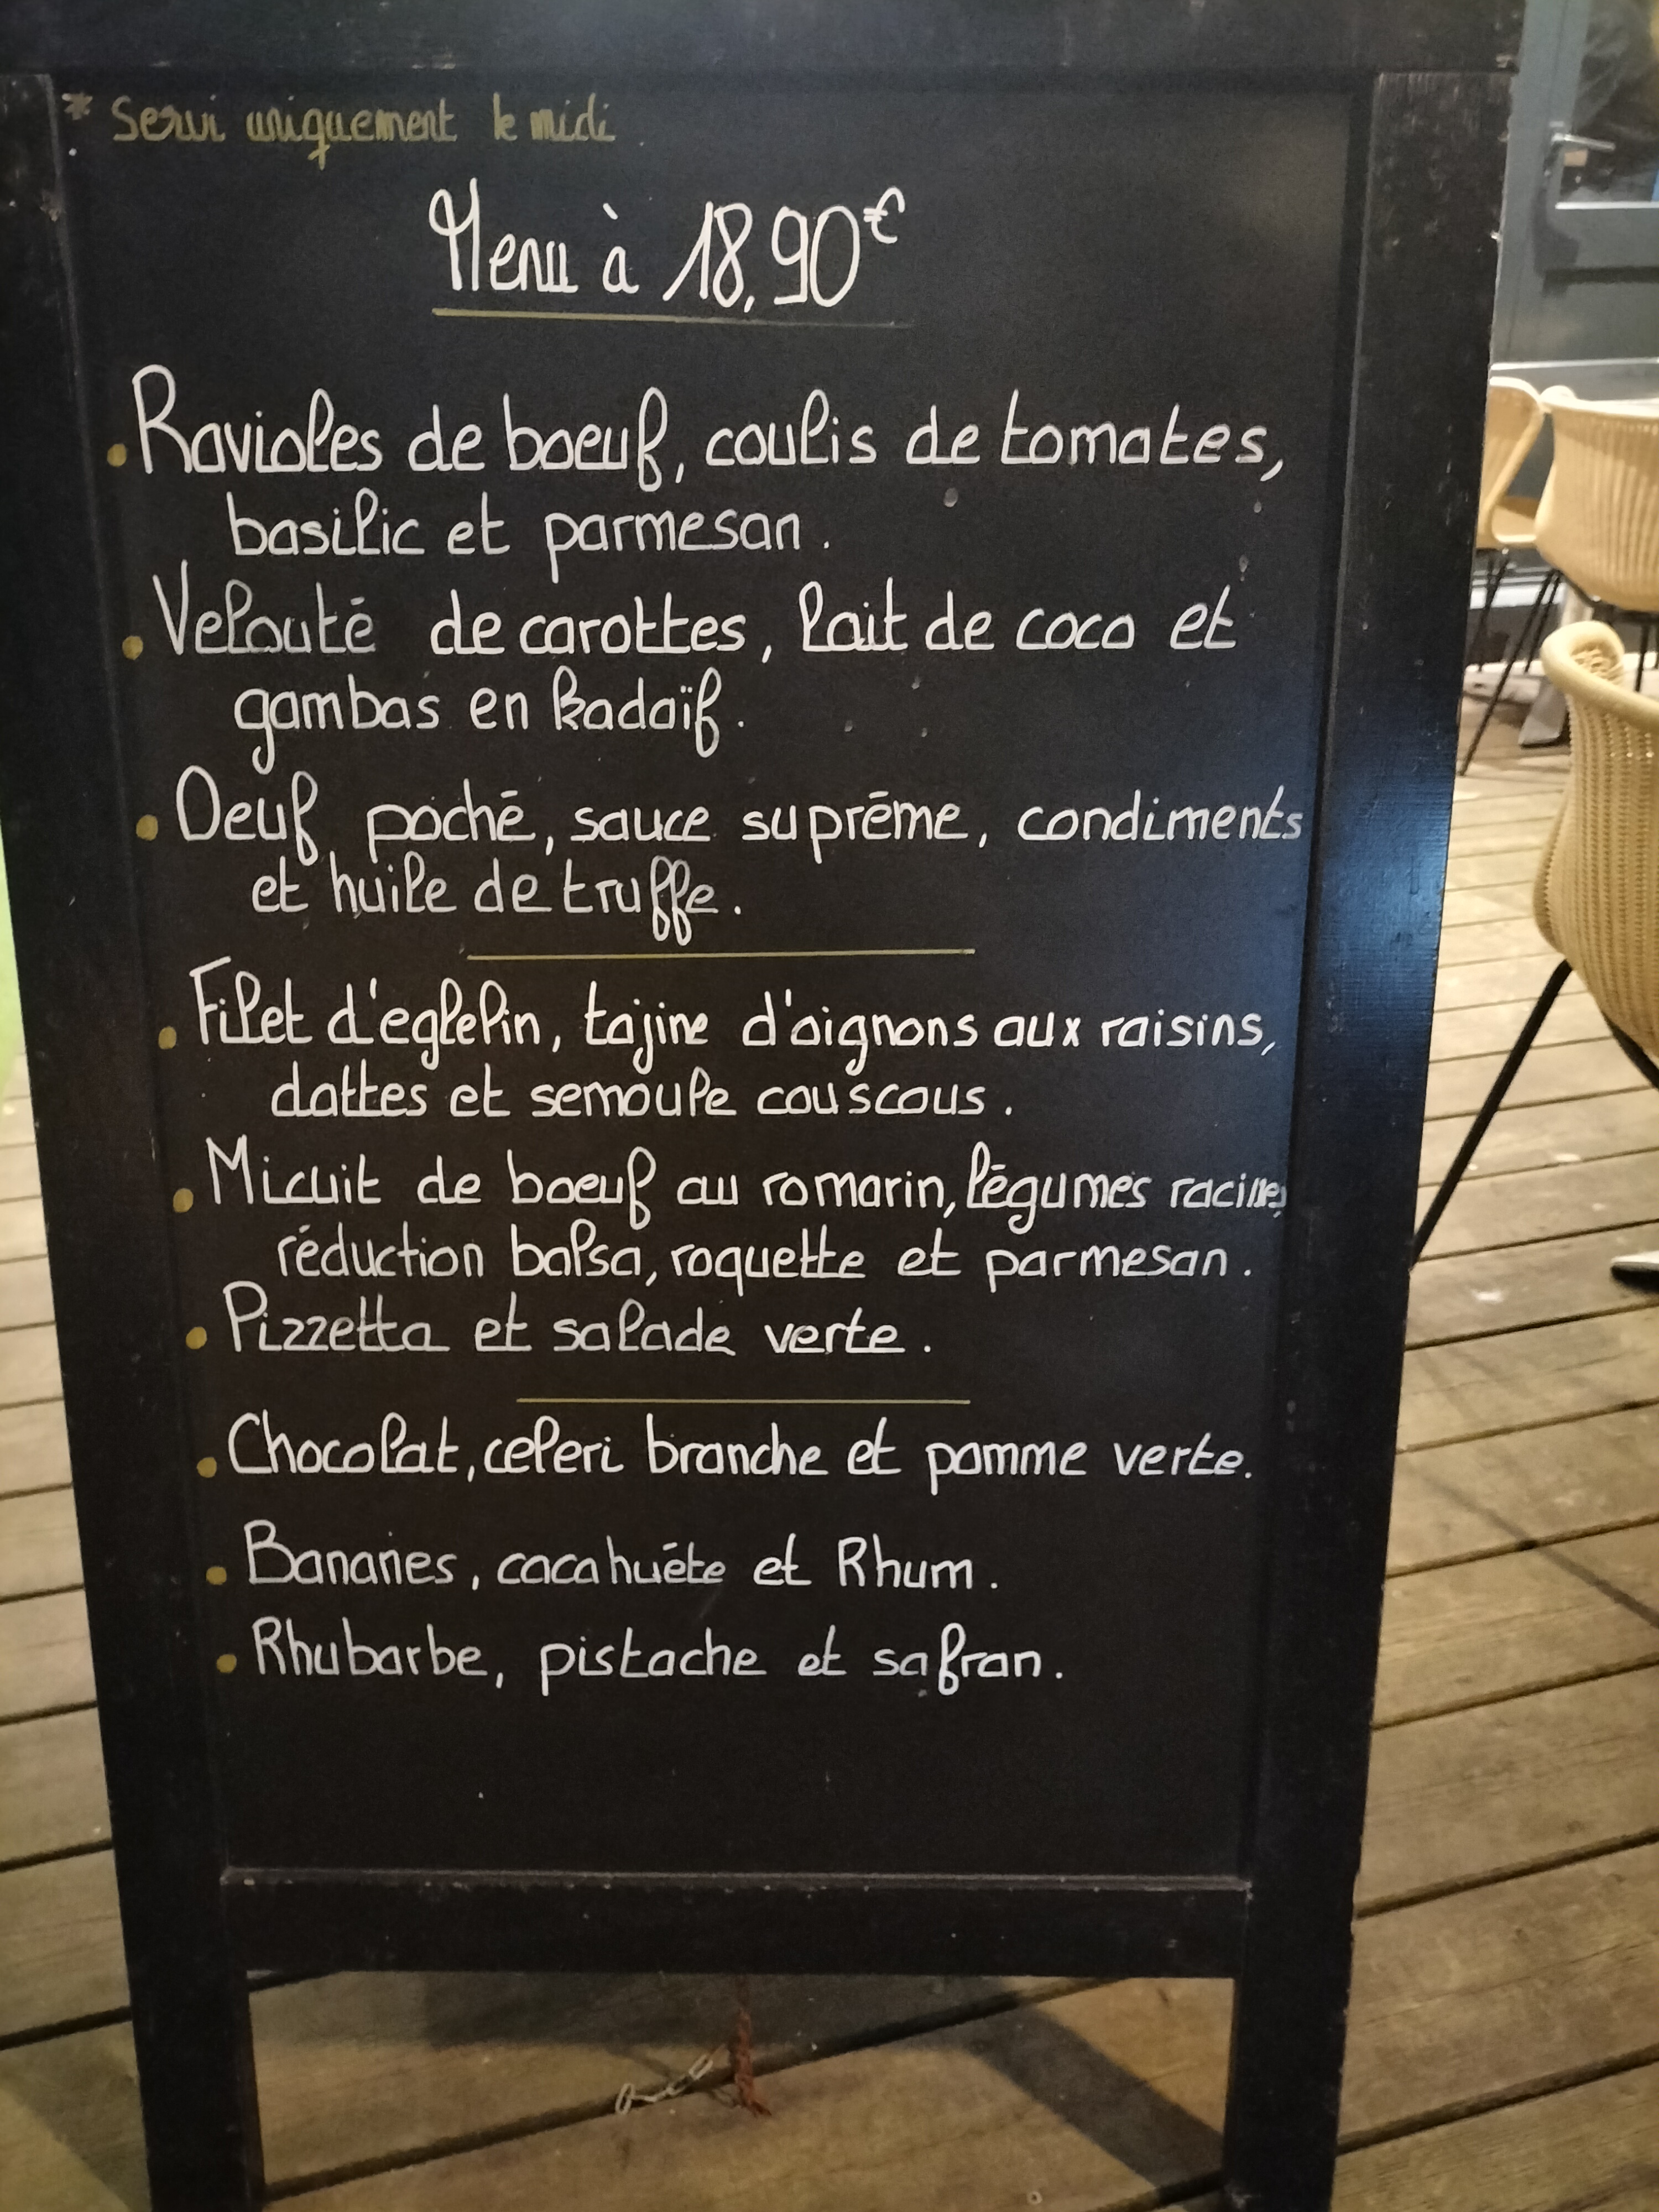 * Servi uniquement le midi
Menu à 18,90€
• Ravioles de boeuf, coulis de tomates,
basilic et parmesan.
• Velouté de carottes, lait de coco et
gambas en kadaïf.
• Oeuf poché, sauce suprême, condiments
et huile de truffe.
• Filet d'eglefin, tajine d'oignons aux raisins,
dattes et semoule couscous.
• Micuit de boeuf au romarin, légumes racines
réduction balsa, roquette et parmesan.
• Pizzetta et salade verte.
• Chocolat, celeri branche et pomme verte.
• Bananes, cacahuète et Rhum.
• Rhubarbe, pistache et safran.